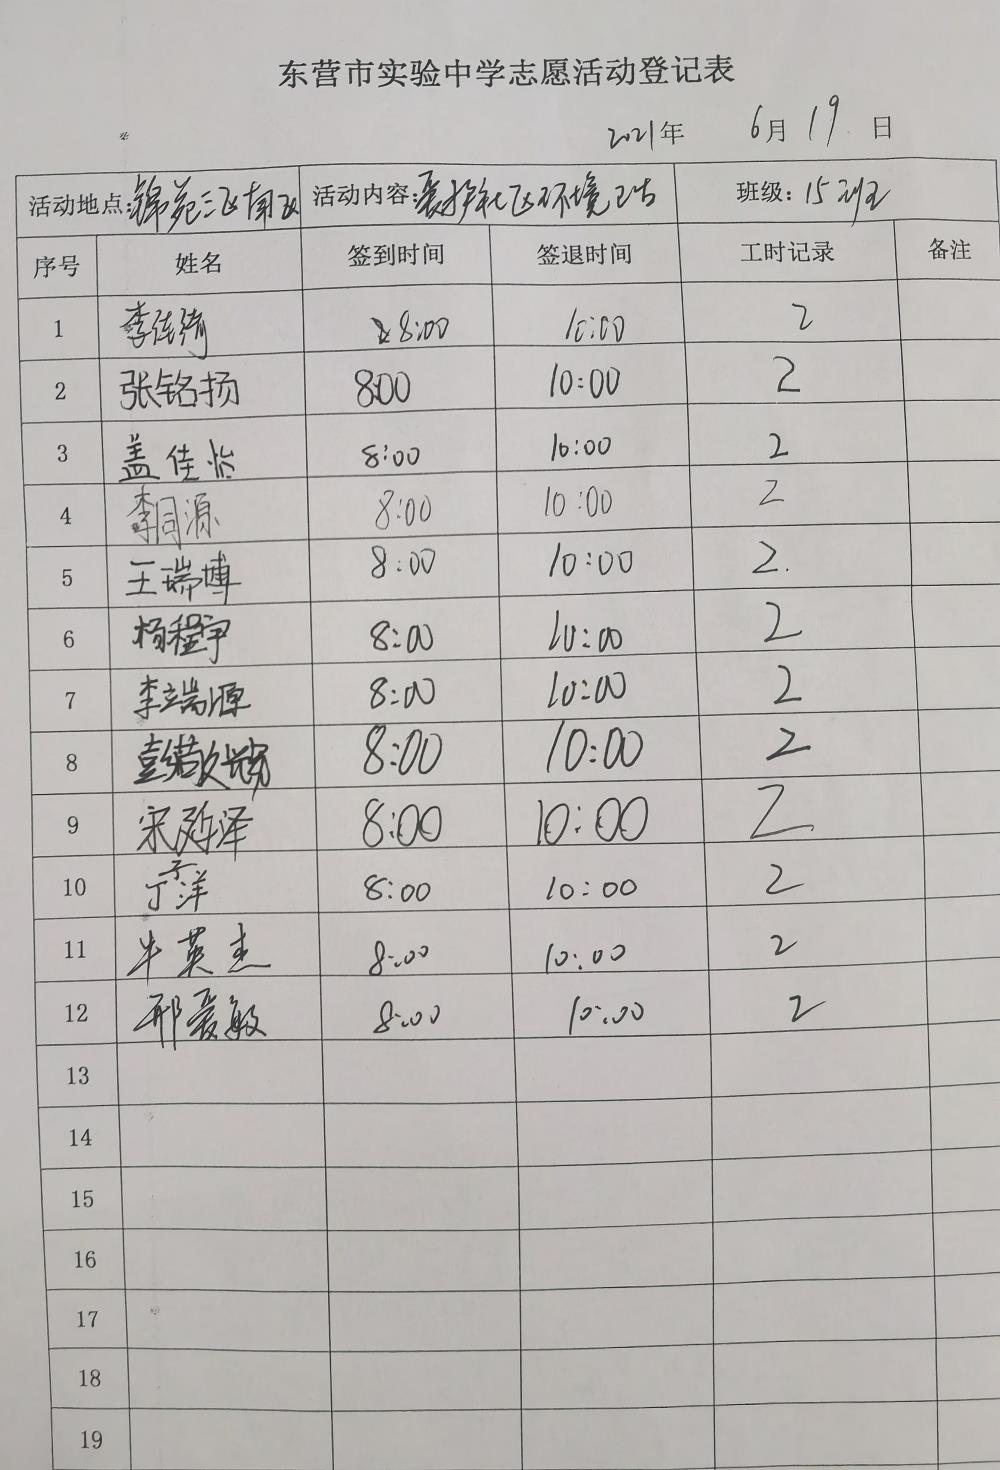 东营市实验中学志愿活动登记表
2021年 6月19日
活动地点:锦苑三区南区 活动内容:爱护社区环境卫生 班级:15班
序号 姓名 签到时间 签退时间 工时记录 备注
1 李 8:00 10:00 2
2 张铭扬 8:00 10:00 2
3 盖佳怡 8:00 10:00 2
4 李同源 8:00 10:00 2
5 王瑞博 8:00 10:00 2.
6 杨程宇 8:00 10:00 2
7 李端源 8:00 10:00 2
8 8:00 10:00 2
9 宋泽 8:00 10:00 2
10 丁子洋 8:00 10:00 2
11 牛英杰 8:00 10:00 2
12 邢爱敏 8:00 10:00 2
13
14
15
16
17
18
19